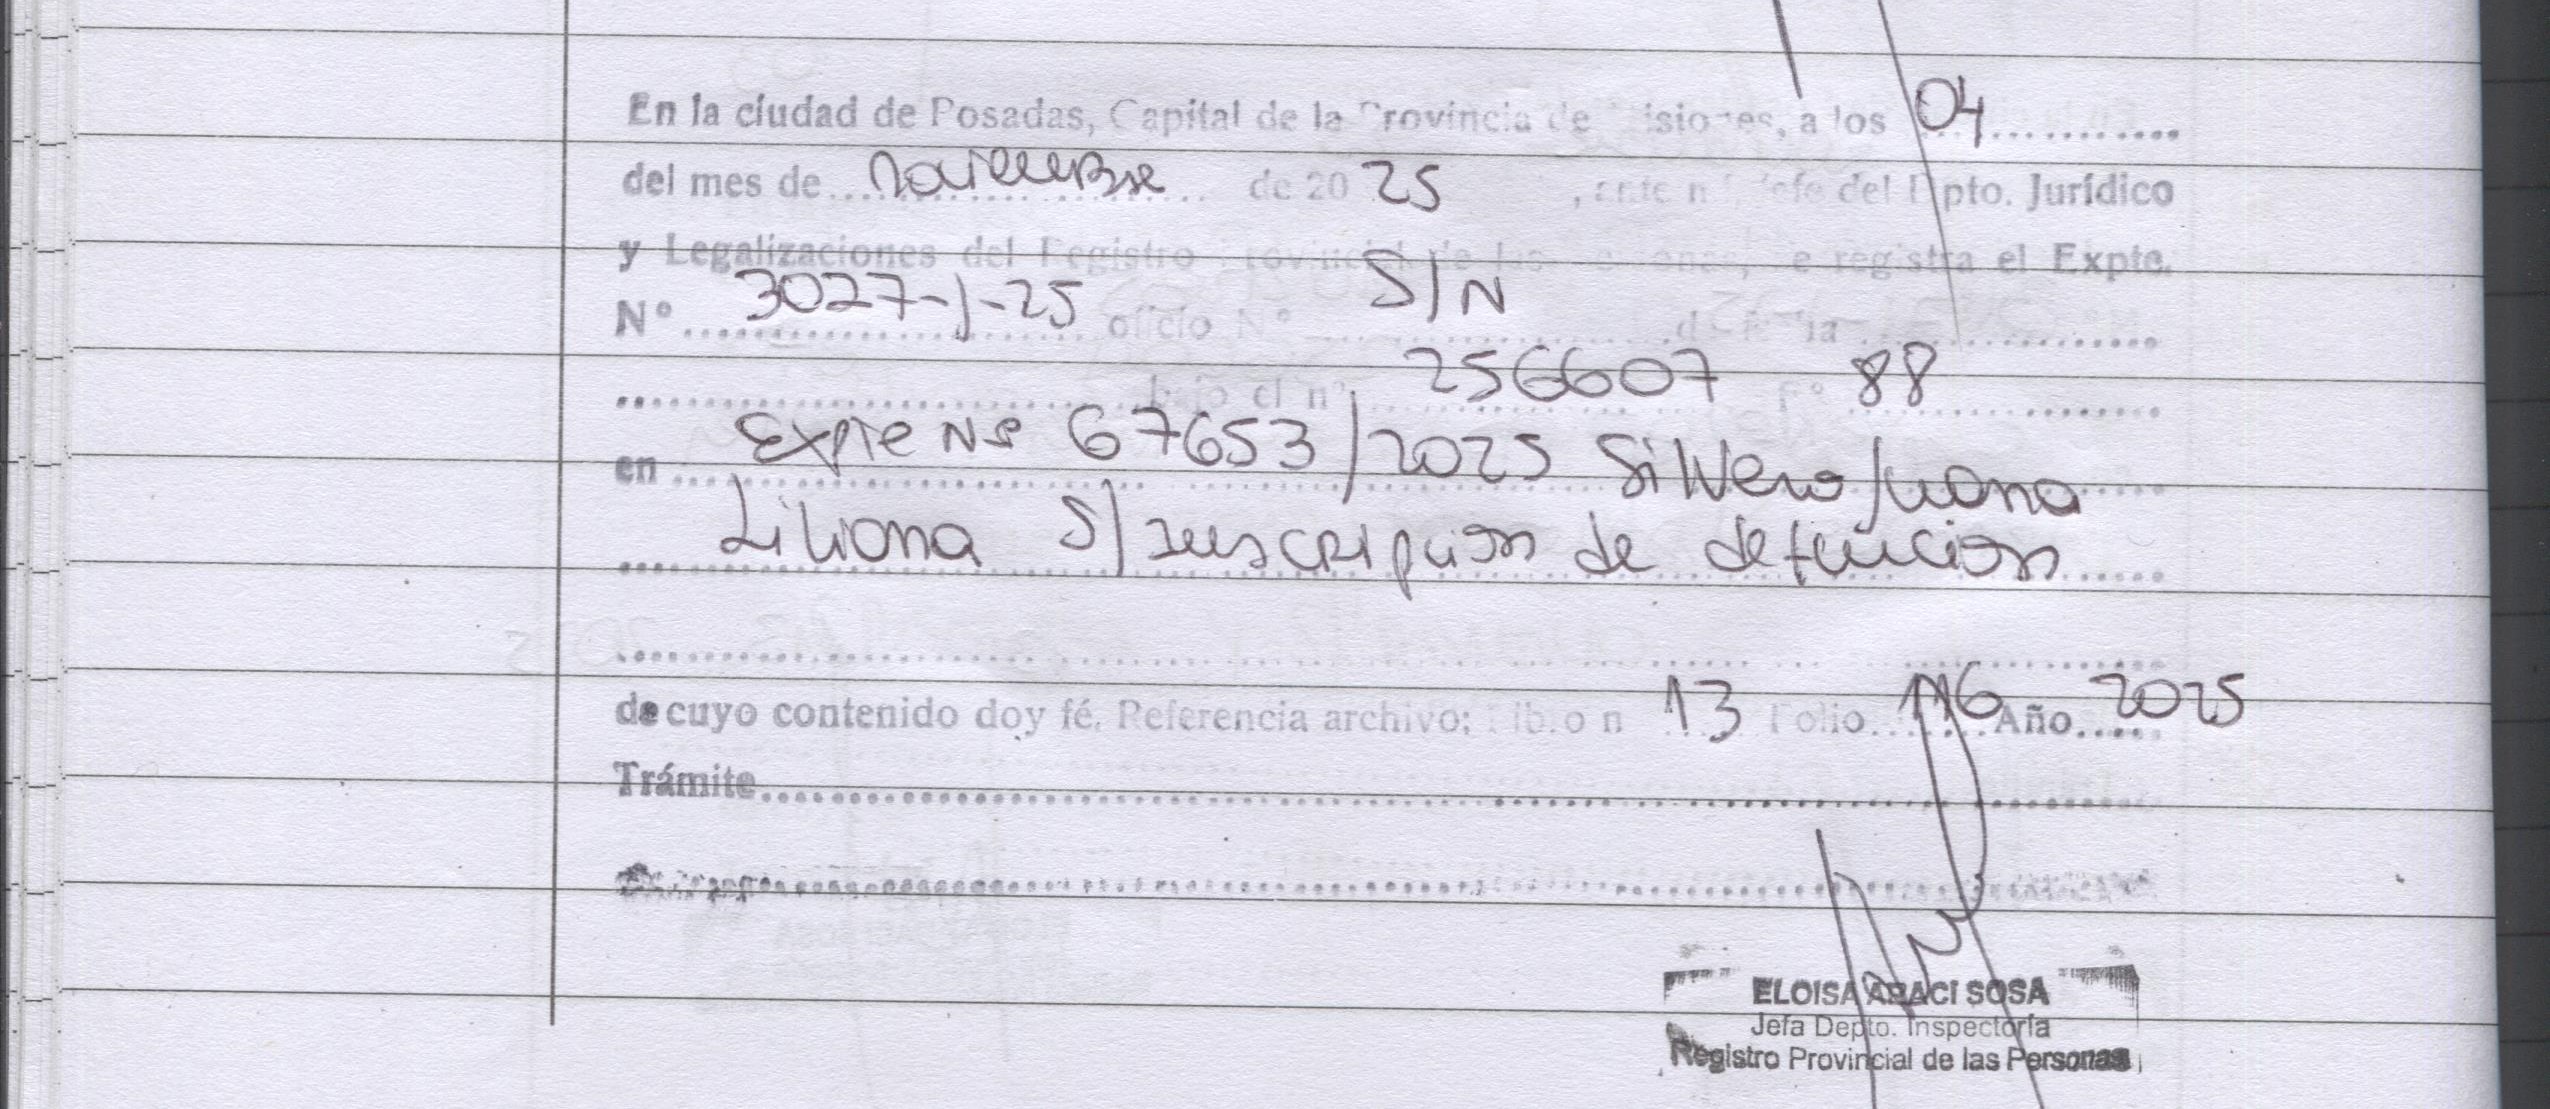 En la ciudad de Posadas, Capital de la Provincia de Misiones, a los 04
del mes de noviembre de 20 25, ante mí, Jefe del Dpto. Jurídico
y Legalizaciones del Registro Provincial de las Personas, se registra el Expte.
Nº 3027-J-25 oficio Nº S/N de fecha
bajo el nº 256607 Fº 88
en Expte Nº 67653/2025 Silvero Juana
Liliana S/ Inscripcion de defuncion
de cuyo contenido doy fé. Referencia archivo: Libro n 13 Folio 116 Año 2025
Trámite
ELOISA ARACI SOSA
Jefa Depto. Inspectoría
Registro Provincial de las Personas